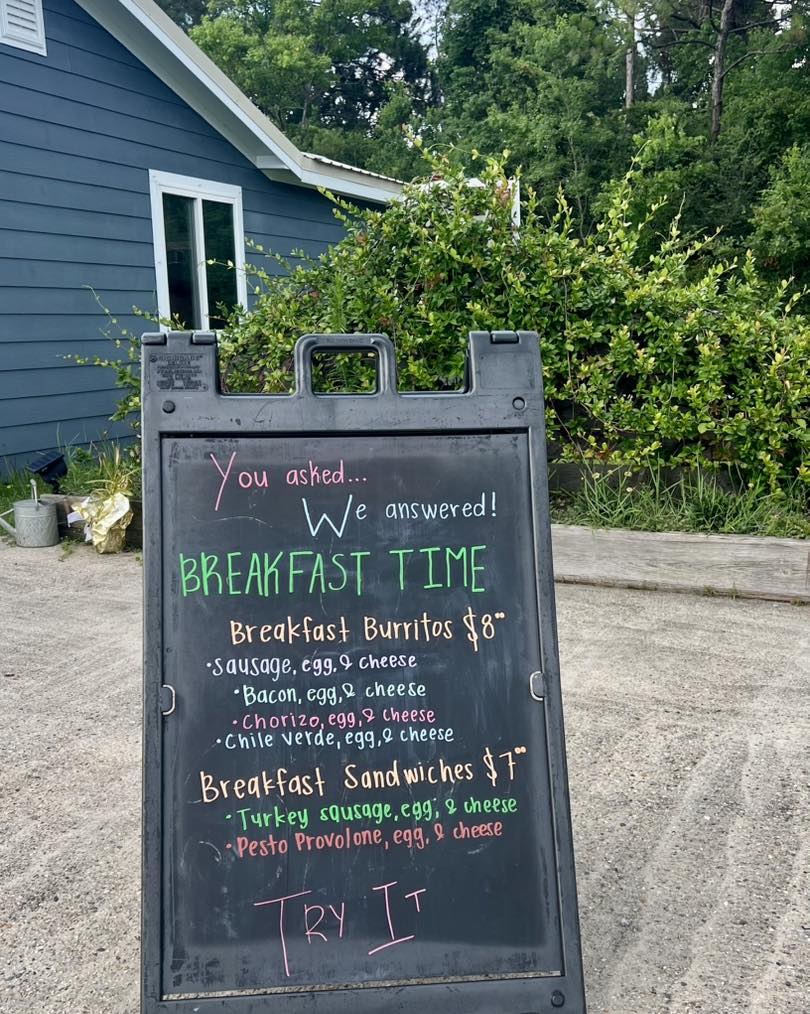 You asked...
We answered!
BREAKFAST TIME
Breakfast Burritos $8°°
•Sausage, egg, & cheese
•Bacon, egg, & cheese
•Chorizo, egg, & cheese
•Chile verde, egg, & cheese
Breakfast Sandwiches $7°°
•Turkey sausage, egg, & cheese
•Pesto Provolone, egg, & cheese
TRY IT